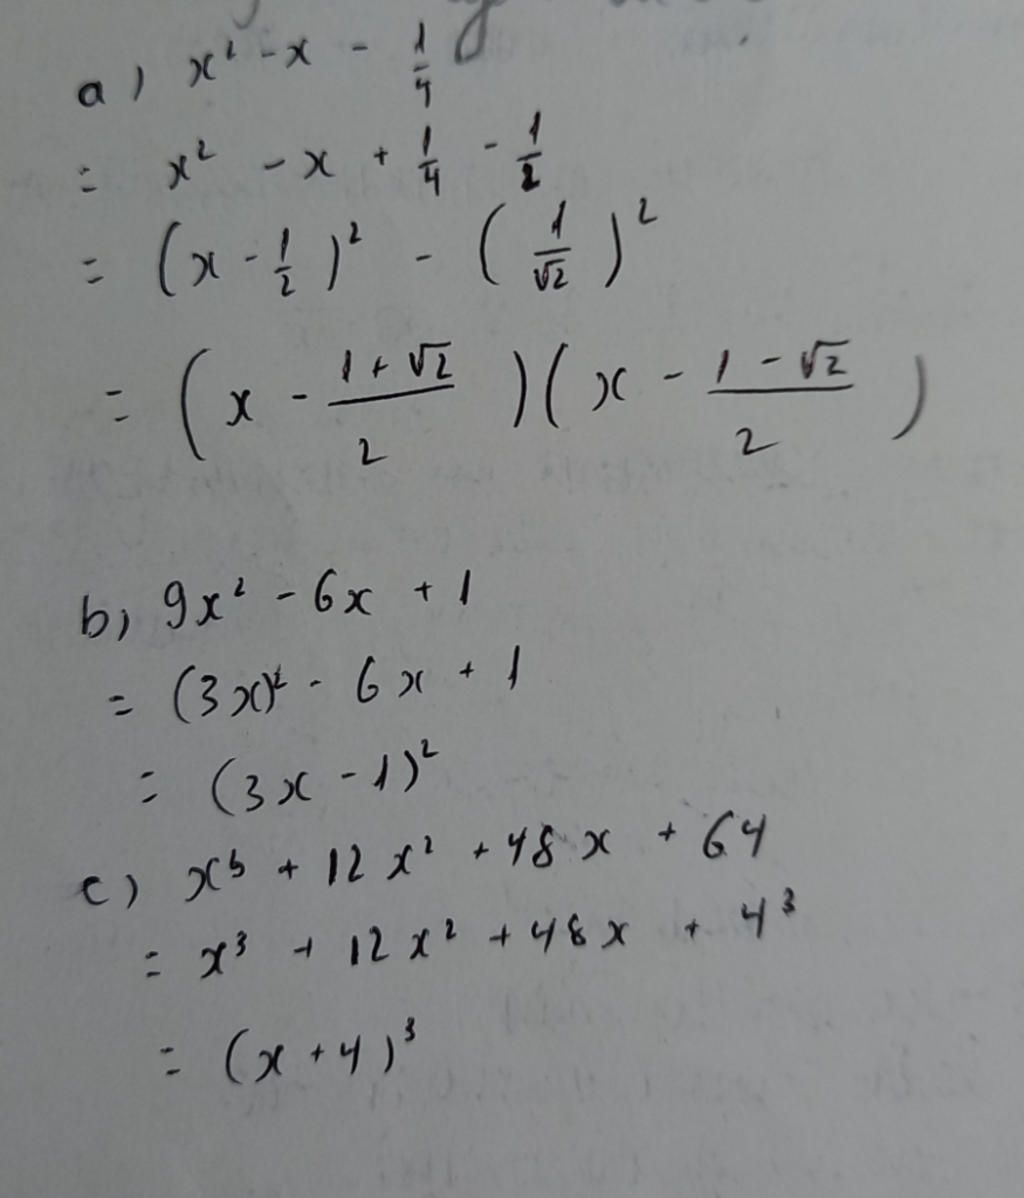 a) x² - x - 1/4
= x² - x + 1/4 - 1/2
= (x - 1/2)² - (1/√2)²
= (x - (1 + √2)/2)(x - (1 - √2)/2)
b) 9x² - 6x + 1
= (3x)² - 6x + 1
= (3x - 1)²
c) x³ + 12x² + 48x + 64
= x³ + 12x² + 48x + 4³
= (x + 4)³